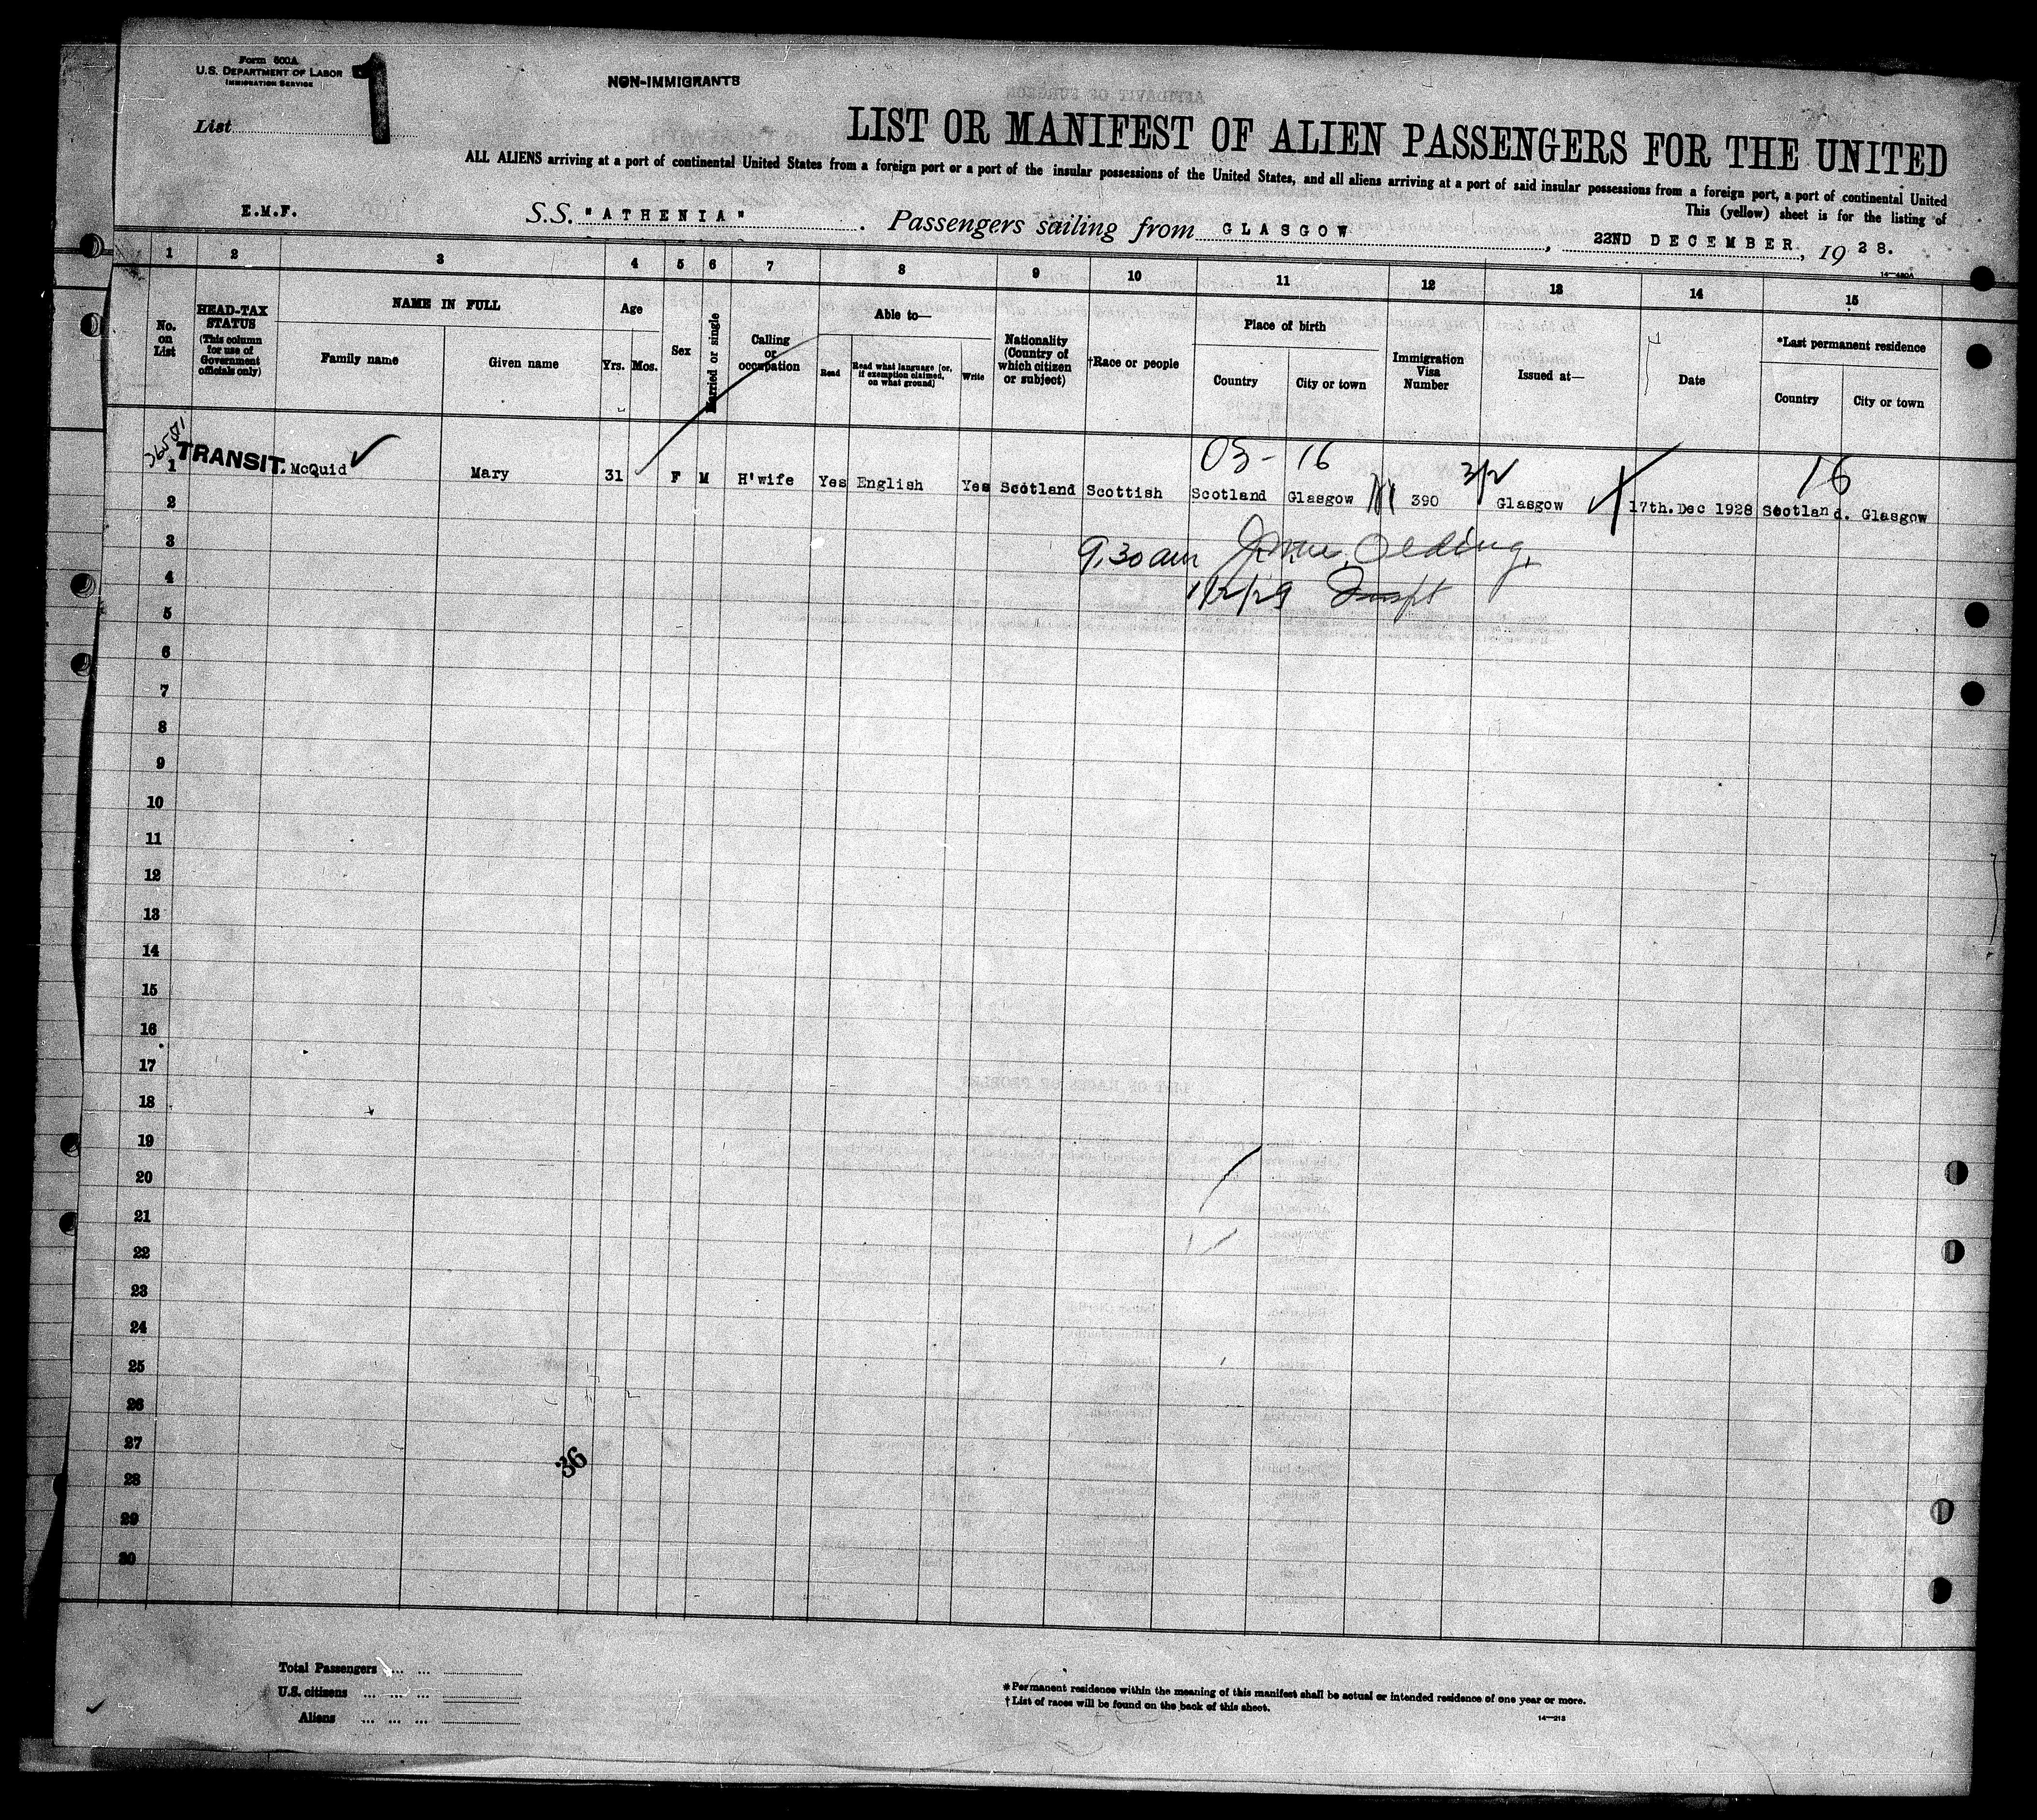 Form 500A
U.S. DEPARTMENT OF LABOR
IMMIGRATION SERVICE
1
NON-IMMIGRANTS
List
LIST OR MANIFEST OF ALIEN PASSENGERS FOR THE UNITED
ALL ALIENS arriving at a port of continental United States from a foreign port or a port of the insular possessions of the United States, and all aliens arriving at a port of said insular possessions from a foreign port, a port of continental United
This (yellow) sheet is for the listing of
E.M.F.
S.S. "ATHENIA". Passengers sailing from GLASGOW, 22ND DECEMBER, 1928.
14—480A
1 2 3 4 5 6 7 8 9 10 11 12 13 14 15
No. on List
HEAD-TAX STATUS (This column for use of Government officials only)
NAME IN FULL
Family name
Given name
Age
Yrs. Mos.
Sex
Married or single
Calling or occupation
Able to—
Read
Read what language [or, if exemption claimed, on what ground]
Write
Nationality (Country of which citizen or subject)
†Race or people
Place of birth
Country
City or town
Immigration Visa Number
Issued at—
Date
*Last permanent residence
Country
City or town
03- 16 16
1 TRANSIT. McQuid Mary 31 F M H'wife Yes English Yes Scotland Scottish Scotland Glasgow 390 Glasgow 17th.Dec 1928 Scotland. Glasgow
2
3
9,30 am
4
1/2/29 Inspt
5
6
7
8
9
10
11
12
13
14
15
16
17
18
19
20
21
22
23
24
25
26
27
36
28
29
30
Total Passengers ... ...
U.S. citizens ... ... ...
Aliens ... ... ...
* Permanent residence within the meaning of this manifest shall be actual or intended residence of one year or more.
† List of races will be found on the back of this sheet.
14—213